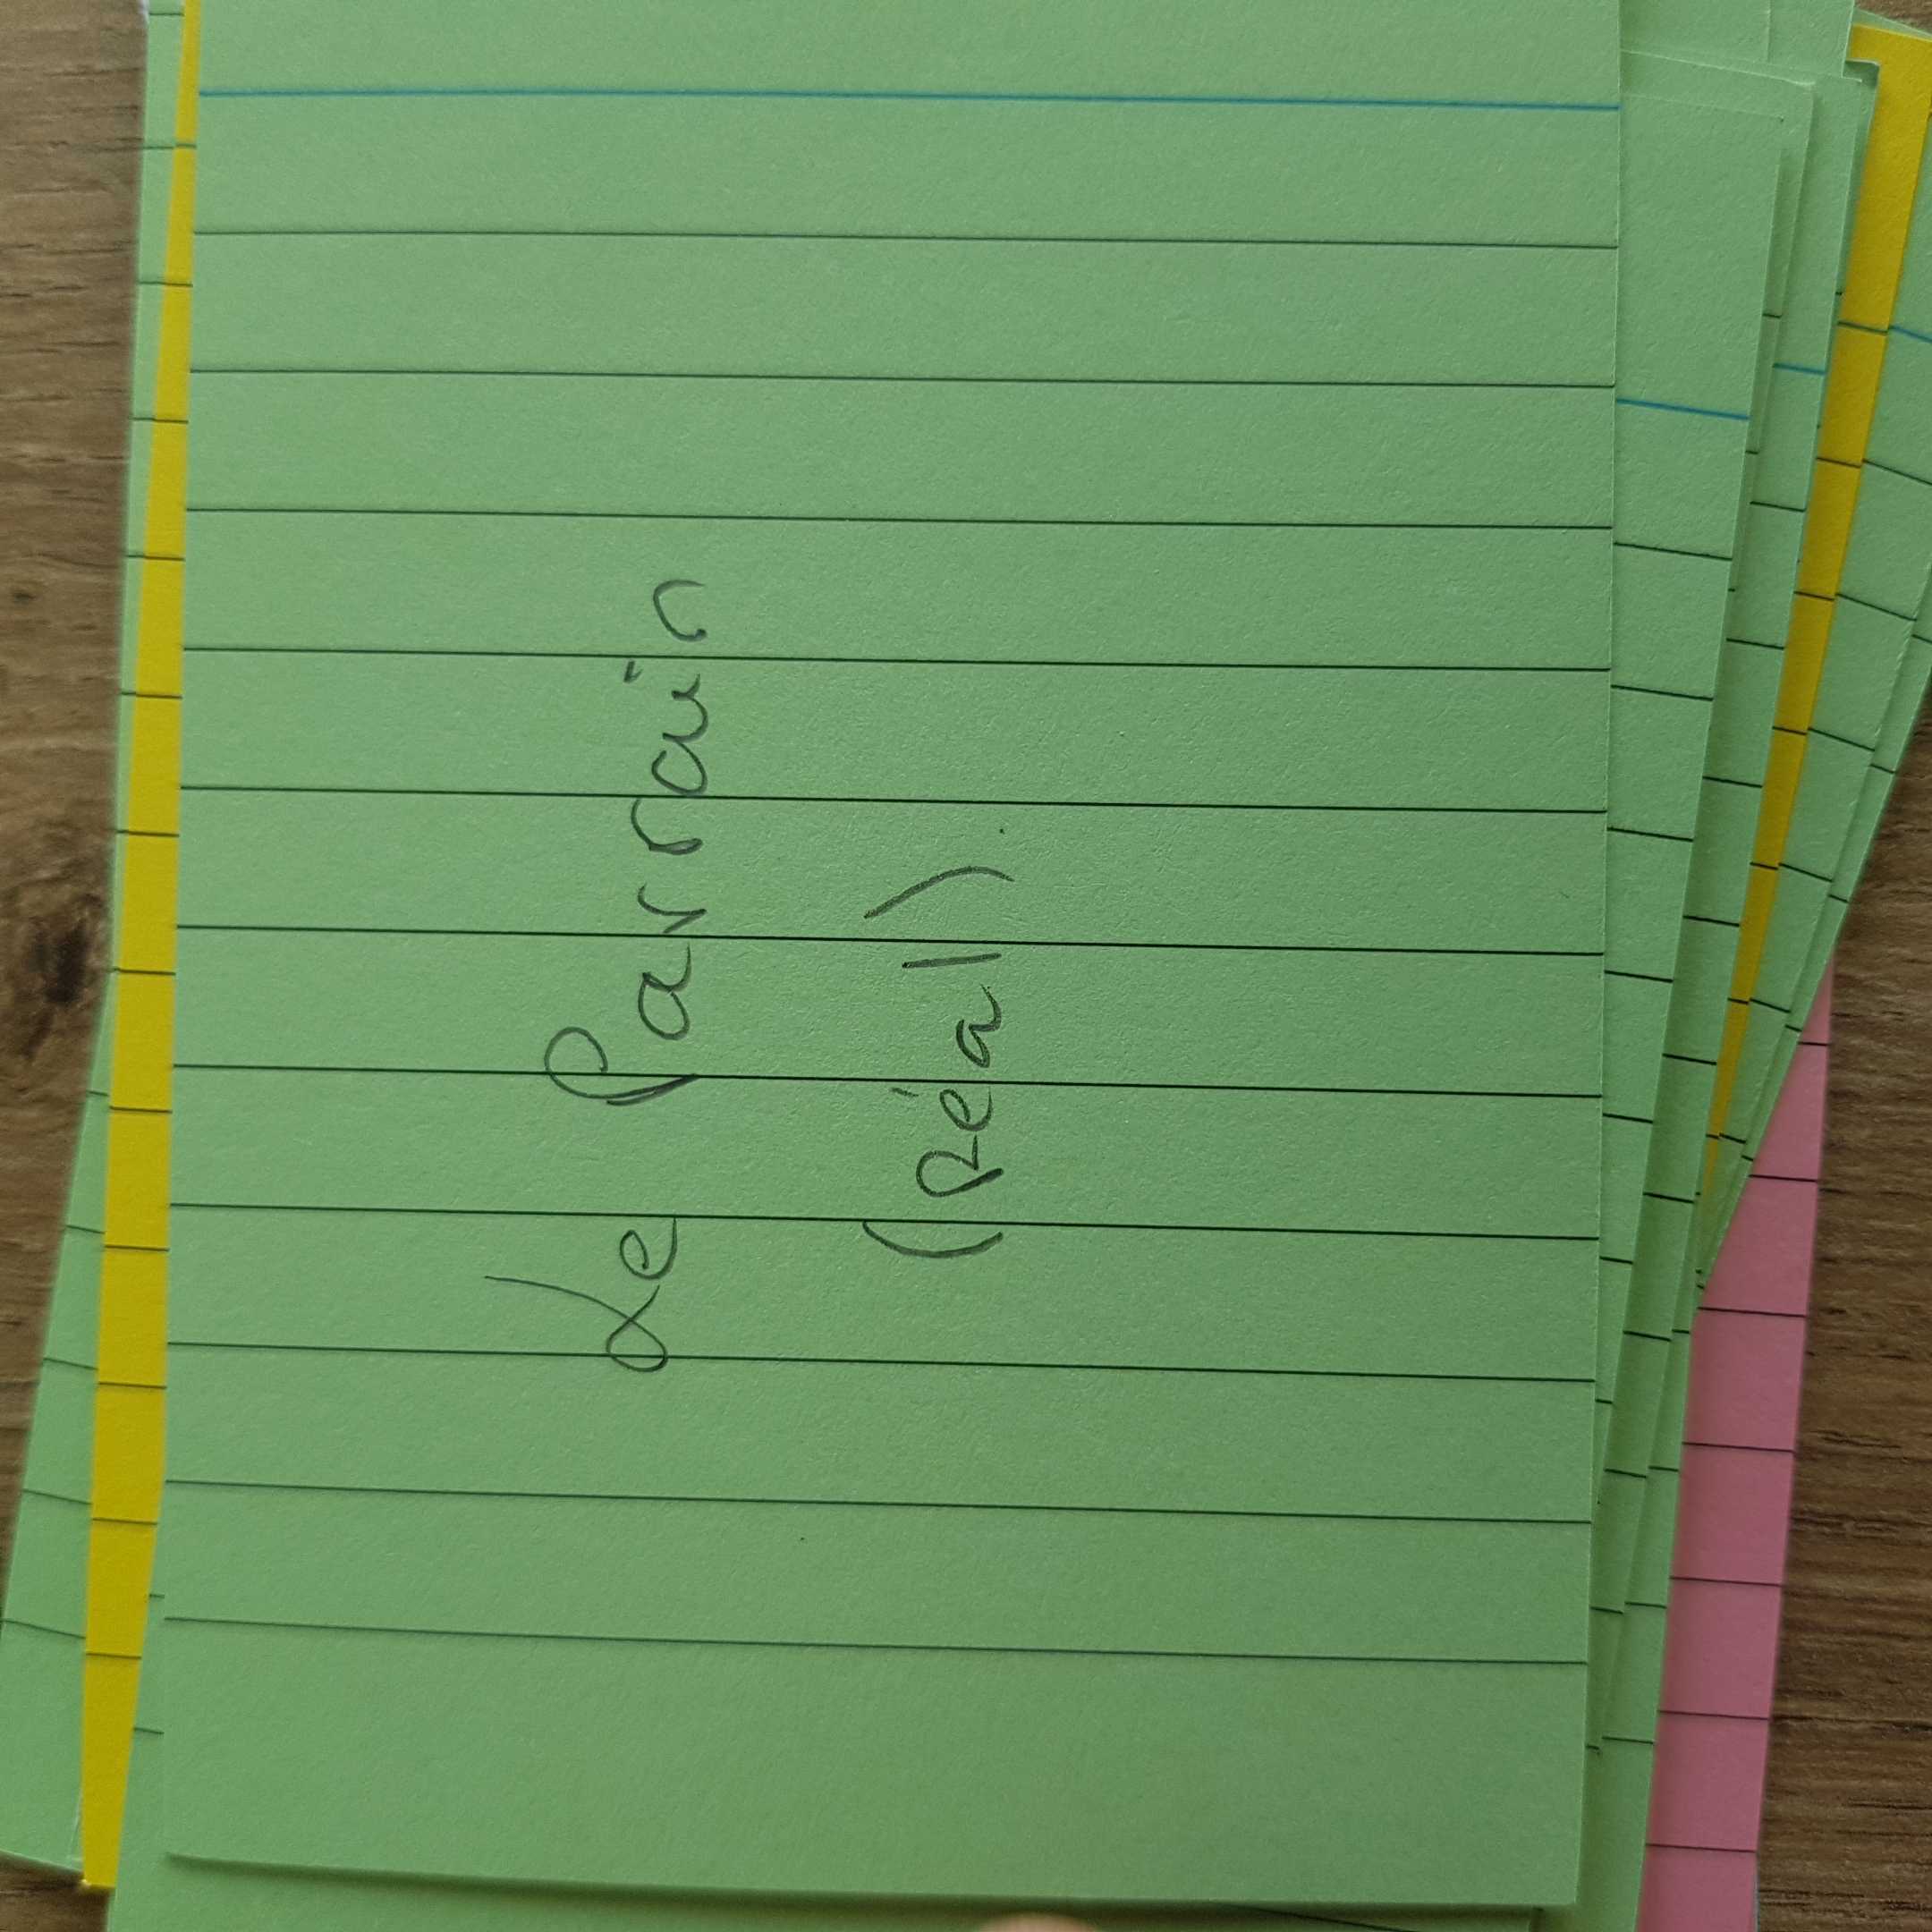 Le Parrain
(Réal).